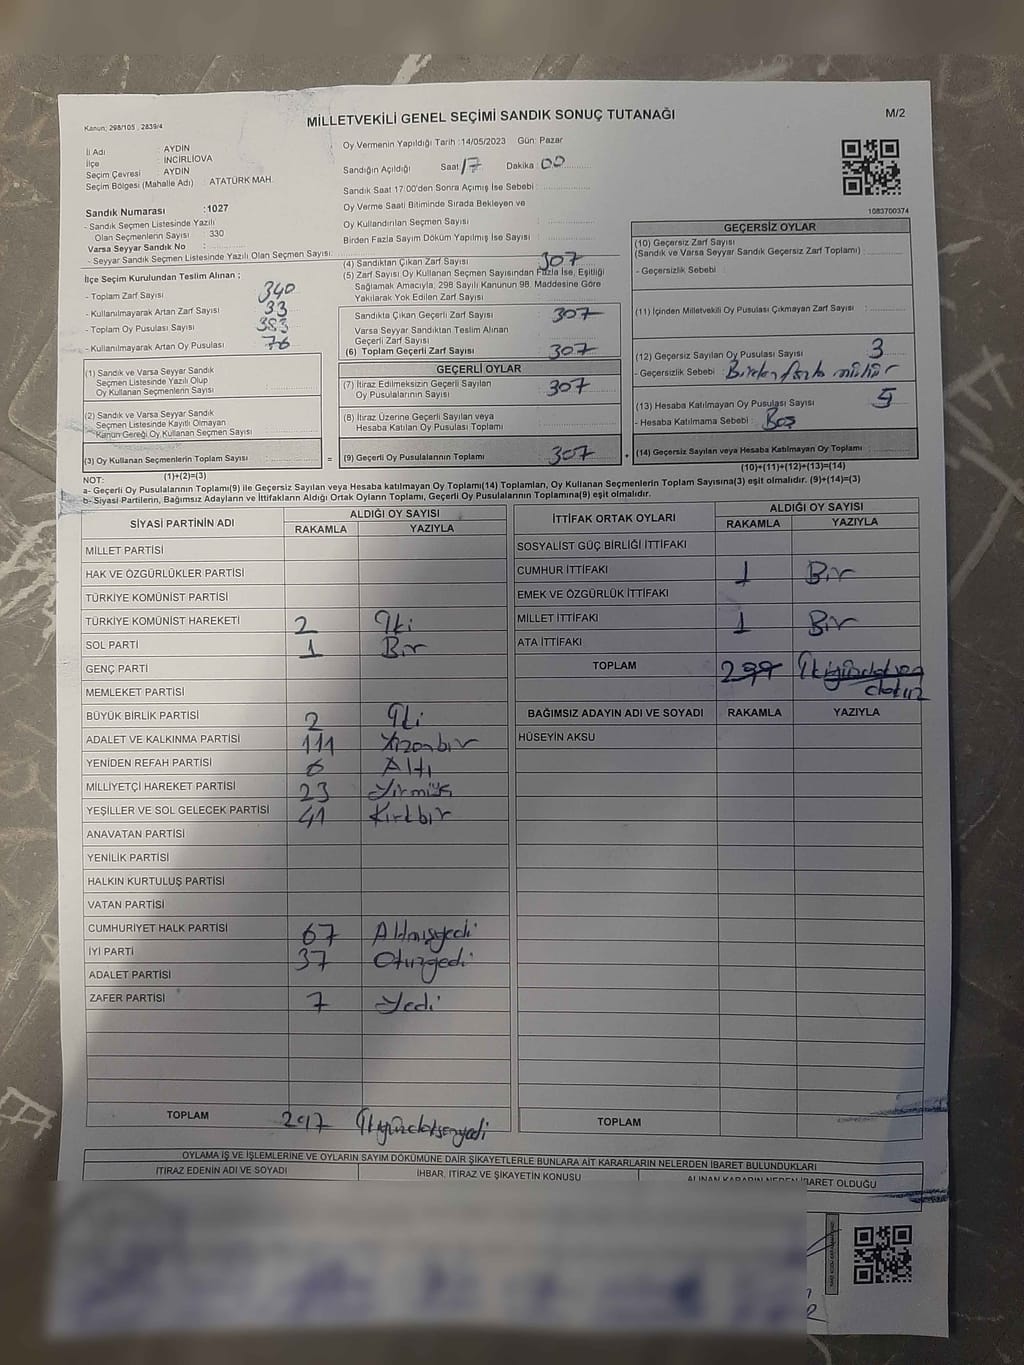 Kanun; 298/105 , 2839/4
MİLLETVEKİLİ GENEL SEÇİMİ SANDIK SONUÇ TUTANAĞI
M/2
İl Adı : AYDIN
İlçe : İNCİRLİOVA
Seçim Çevresi : AYDIN
Seçim Bölgesi (Mahalle Adı) : ATATÜRK MAH.
Sandık Numarası :1027
- Sandık Seçmen Listesinde Yazılı
Olan Seçmenlerin Sayısı : 330
Varsa Seyyar Sandık No :
- Seyyar Sandık Seçmen Listesinde Yazılı Olan Seçmen Sayısı:
Oy Vermenin Yapıldığı Tarih :14/05/2023 Gün: Pazar
Sandığın Açıldığı Saat 17 Dakika 00
Sandık Saat 17:00'den Sonra Açımış İse Sebebi :
Oy Verme Saati Bitiminde Sırada Bekleyen ve
Oy Kullandırılan Seçmen Sayısı :
Birden Fazla Sayım Döküm Yapılmış İse Sayısı :
1083700374
İlçe Seçim Kurulundan Teslim Alınan ;
- Toplam Zarf Sayısı : 340
- Kullanılmayarak Artan Zarf Sayısı : 33
- Toplam Oy Pusulası Sayısı : 383
- Kullanılmayarak Artan Oy Pusulası : 76
(1) Sandık ve Varsa Seyyar Sandık
Seçmen Listesinde Yazılı Olup
Oy Kullanan Seçmenlerin Sayısı :
(2) Sandık ve Varsa Seyyar Sandık
Seçmen Listesinde Kayıtlı Olmayan
Kanun Gereği Oy Kullanan Seçmen Sayısı :
(3) Oy Kullanan Seçmenlerin Toplam Sayısı :
(1)+(2)=(3)
(4) Sandıktan Çıkan Zarf Sayısı : 307
(5) Zarf Sayısı Oy Kullanan Seçmen Sayısından Fazla İse, Eşitliği
Sağlamak Amacıyla, 298 Sayılı Kanunun 98. Maddesine Göre
Yakılarak Yok Edilen Zarf Sayısı :
Sandıkta Çıkan Geçerli Zarf Sayısı : 307
Varsa Seyyar Sandıktan Teslim Alınan
Geçerli Zarf Sayısı :
(6) Toplam Geçerli Zarf Sayısı : 307
GEÇERLİ OYLAR
(7) İtiraz Edilmeksizin Geçerli Sayılan
Oy Pusulalarının Sayısı : 307
(8) İtiraz Üzerine Geçerli Sayılan veya
Hesaba Katılan Oy Pusulası Toplamı :
= (9) Geçerli Oy Pusulalarının Toplamı : 307 +
GEÇERSİZ OYLAR
(10) Geçersiz Zarf Sayısı
(Sandık ve Varsa Seyyar Sandık Geçersiz Zarf Toplamı) :
- Geçersizlik Sebebi :
(11) İçinden Milletvekili Oy Pusulası Çıkmayan Zarf Sayısı :
(12) Geçersiz Sayılan Oy Pusulası Sayısı : 3
- Geçersizlik Sebebi : Birden fazla mühür
(13) Hesaba Katılmayan Oy Pusulası Sayısı : 5
- Hesaba Katılmama Sebebi : Boş
(14) Geçersiz Sayılan veya Hesaba Katılmayan Oy Toplamı :
(10)+(11)+(12)+(13)=(14)
NOT:
a- Geçerli Oy Pusulalarının Toplamı(9) ile Geçersiz Sayılan veya Hesaba Katılmayan Oy Toplamı(14) Toplamları, Oy Kullanan Seçmenlerin Toplam Sayısına(3) eşit olmalıdır. (9)+(14)=(3)
b- Siyasi Partilerin, Bağımsız Adayların ve İttifakların Aldığı Ortak Oyların Toplamı, Geçerli Oy Pusulalarının Toplamına(9) eşit olmalıdır.
SİYASİ PARTİNİN ADI
ALDIĞI OY SAYISI
RAKAMLA YAZIYLA
MİLLET PARTİSİ
HAK VE ÖZGÜRLÜKLER PARTİSİ
TÜRKİYE KOMÜNİST PARTİSİ
TÜRKİYE KOMÜNİST HAREKETİ 2 İki
SOL PARTİ 1 Bir
GENÇ PARTİ
MEMLEKET PARTİSİ
BÜYÜK BİRLİK PARTİSİ 2 İki
ADALET VE KALKINMA PARTİSİ 111 Yüzonbir
YENİDEN REFAH PARTİSİ 6 Altı
MİLLİYETÇİ HAREKET PARTİSİ 23 Yirmiüç
YEŞİLLER VE SOL GELECEK PARTİSİ 41 Kırkbir
ANAVATAN PARTİSİ
YENİLİK PARTİSİ
HALKIN KURTULUŞ PARTİSİ
VATAN PARTİSİ
CUMHURİYET HALK PARTİSİ 67 Altmışyedi
İYİ PARTİ 37 Otuzyedi
ADALET PARTİSİ
ZAFER PARTİSİ 7 Yedi
TOPLAM 297 İkiyüzdoksanyedi
İTTİFAK ORTAK OYLARI
ALDIĞI OY SAYISI
RAKAMLA YAZIYLA
SOSYALİST GÜÇ BİRLİĞİ İTTİFAKI
CUMHUR İTTİFAKI 1 Bir
EMEK VE ÖZGÜRLÜK İTTİFAKI
MİLLET İTTİFAKI 1 Bir
ATA İTTİFAKI
TOPLAM 299 İkiyüzdoksan
dokuz
BAĞIMSIZ ADAYIN ADI VE SOYADI RAKAMLA YAZIYLA
HÜSEYİN AKSU
TOPLAM
OYLAMA İŞ VE İŞLEMLERİNE VE OYLARIN SAYIM DÖKÜMÜNE DAİR ŞİKAYETLERLE BUNLARA AİT KARARLARIN NELERDEN İBARET BULUNDUKLARI
İTİRAZ EDENİN ADI VE SOYADI İHBAR, İTİRAZ VE ŞİKAYETİN KONUSU ALINAN KARARIN NEDEN İBARET OLDUĞU